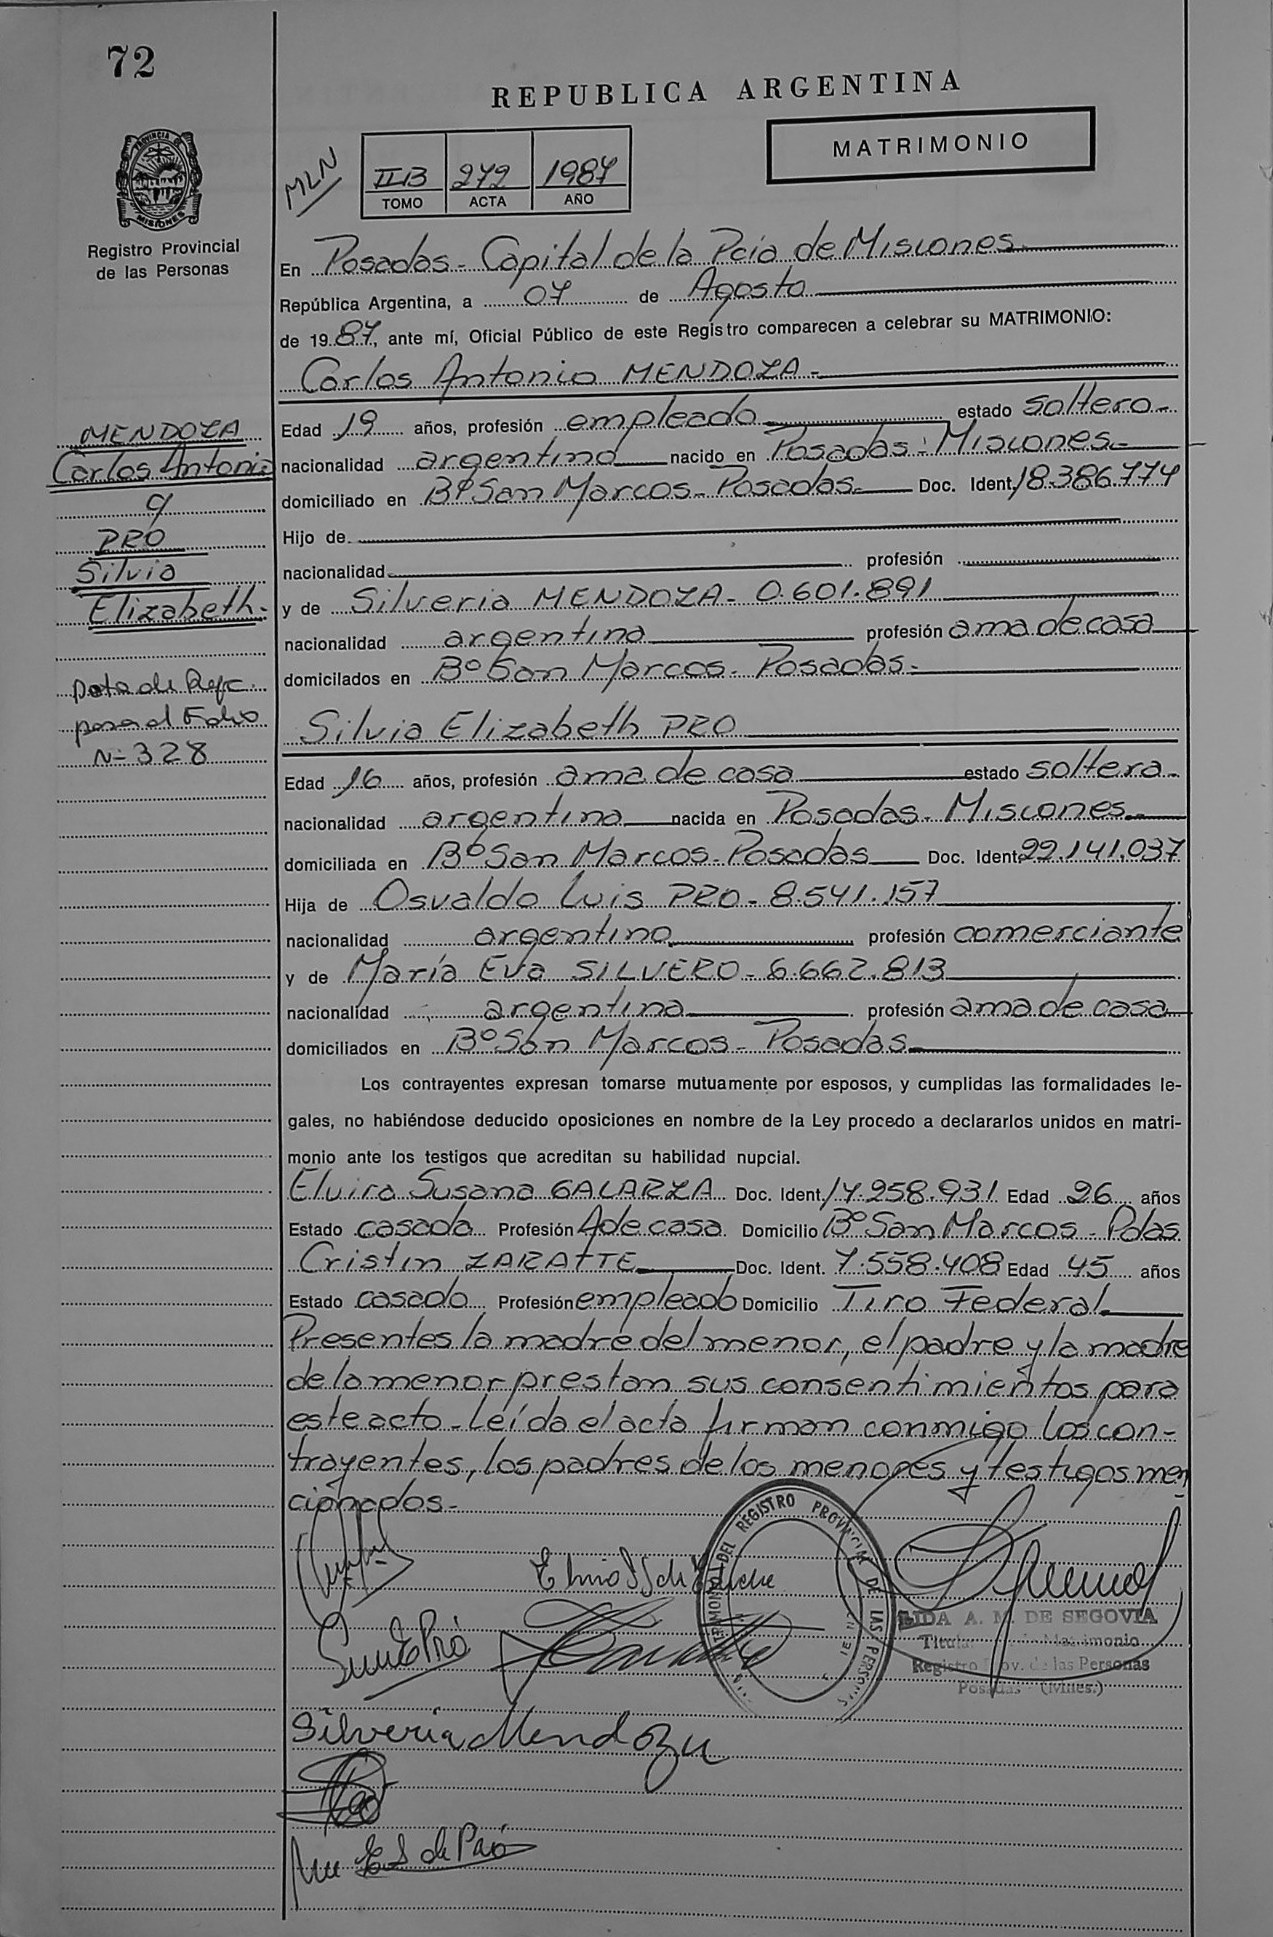 72
REPUBLICA ARGENTINA
MATRIMONIO
MLN
II B 272 1987
TOMO ACTA AÑO
Registro Provincial
de las Personas
En Posadas - Capital de la Pcia de Misiones
República Argentina, a 07 de Agosto
de 1987, ante mí, Oficial Público de este Registro comparecen a celebrar su MATRIMONIO:
Carlos Antonio MENDOZA -
Edad 19 años, profesión empleado estado soltero -
nacionalidad argentino nacido en Posadas - Misiones -
domiciliado en Bº San Marcos - Posadas - Doc. Ident. 18.386.774
Hijo de
nacionalidad profesión
y de Silveria MENDOZA - 0.601.891
nacionalidad argentina profesión ama de casa
domicilados en Bº San Marcos - Posadas -
MENDOZA
Carlos Antonio
PRO
Silvia
Elizabeth -
Nota de Refc.
pasa al Folio
Nº 328
Silvia Elizabeth PRO
Edad 16 años, profesión ama de casa estado soltera -
nacionalidad argentina nacida en Posadas - Misiones -
domiciliada en Bº San Marcos - Posadas Doc. Ident. 22.141.037
Hija de Osvaldo Luis PRO - 8.541.157
nacionalidad argentino profesión comerciante
y de María Eva SILVERO - 6.662.813
nacionalidad argentina profesión ama de casa
domiciliados en Bº San Marcos - Posadas
Los contrayentes expresan tomarse mutuamente por esposos, y cumplidas las formalidades le-
gales, no habiéndose deducido oposiciones en nombre de la Ley procedo a declararlos unidos en matri-
monio ante los testigos que acreditan su habilidad nupcial.
Elvira Susana GALARZA Doc. Ident. 14.258.931 Edad 26 años
Estado casada Profesión A de casa Domicilio Bº San Marcos - Pdas
Cristin ZARATTE Doc. Ident. 7.558.408 Edad 45 años
Estado casado Profesión empleado Domicilio Tiro Federal
Presentes la madre del menor, el padre y la madre
de la menor prestan sus consentimientos para
este acto - Leída el acta firman conmigo los con-
trayentes, los padres de los menores y testigos men
cionados -
REGISTRO PROVINCIAL DE LAS PERSONAS
LIDA A. M. DE SEGOVIA
Matrimonio
Registro Prov. de las Personas
Posadas (Mnes.)
Silveria Mendoza
E S de Pró